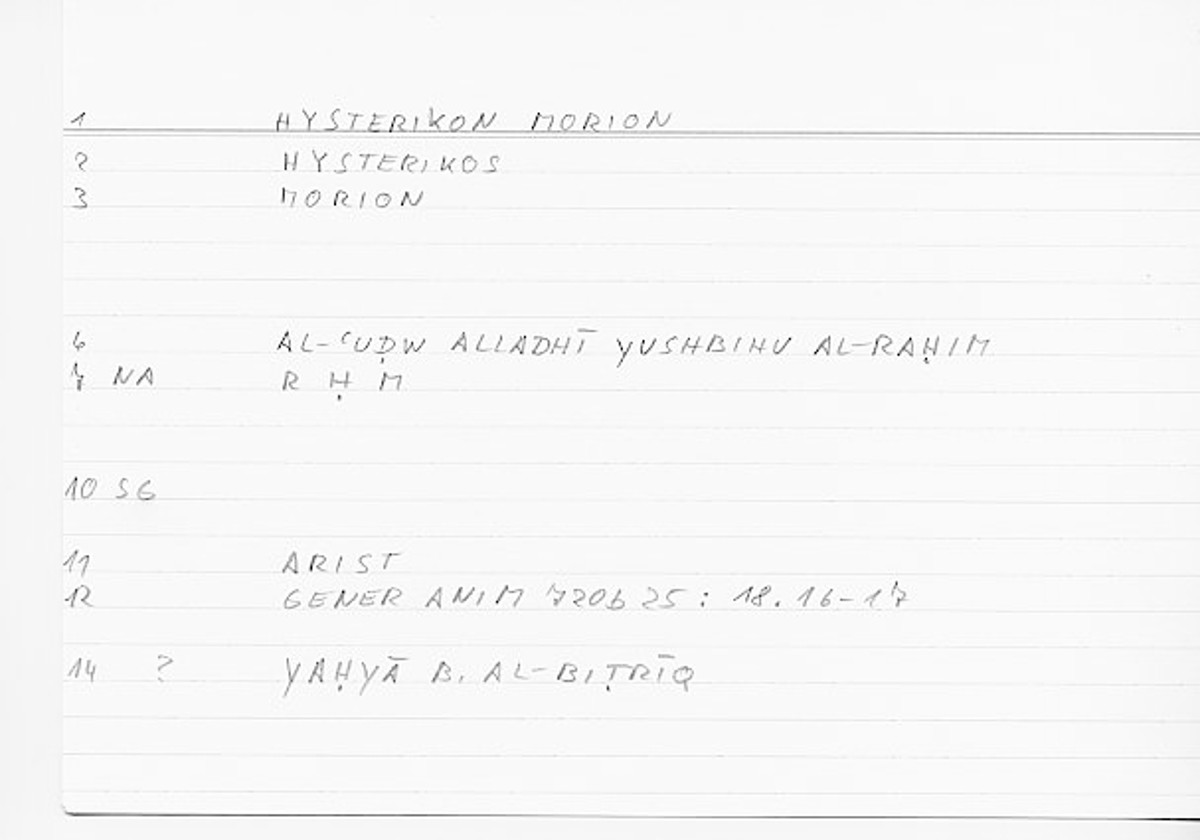 1 HYSTERIKON MORION
2 HYSTERIKOS
3 MORION
6 AL-ʿUḌW ALLADHĪ YUSHBIHU AL-RAḤIM
7 NA R Ḥ M
10 SG
11 ARIST
12 GENER ANIM 720b 25 : 18.16-17
14 ? YAḤYĀ B. AL-BIṬRĪQ